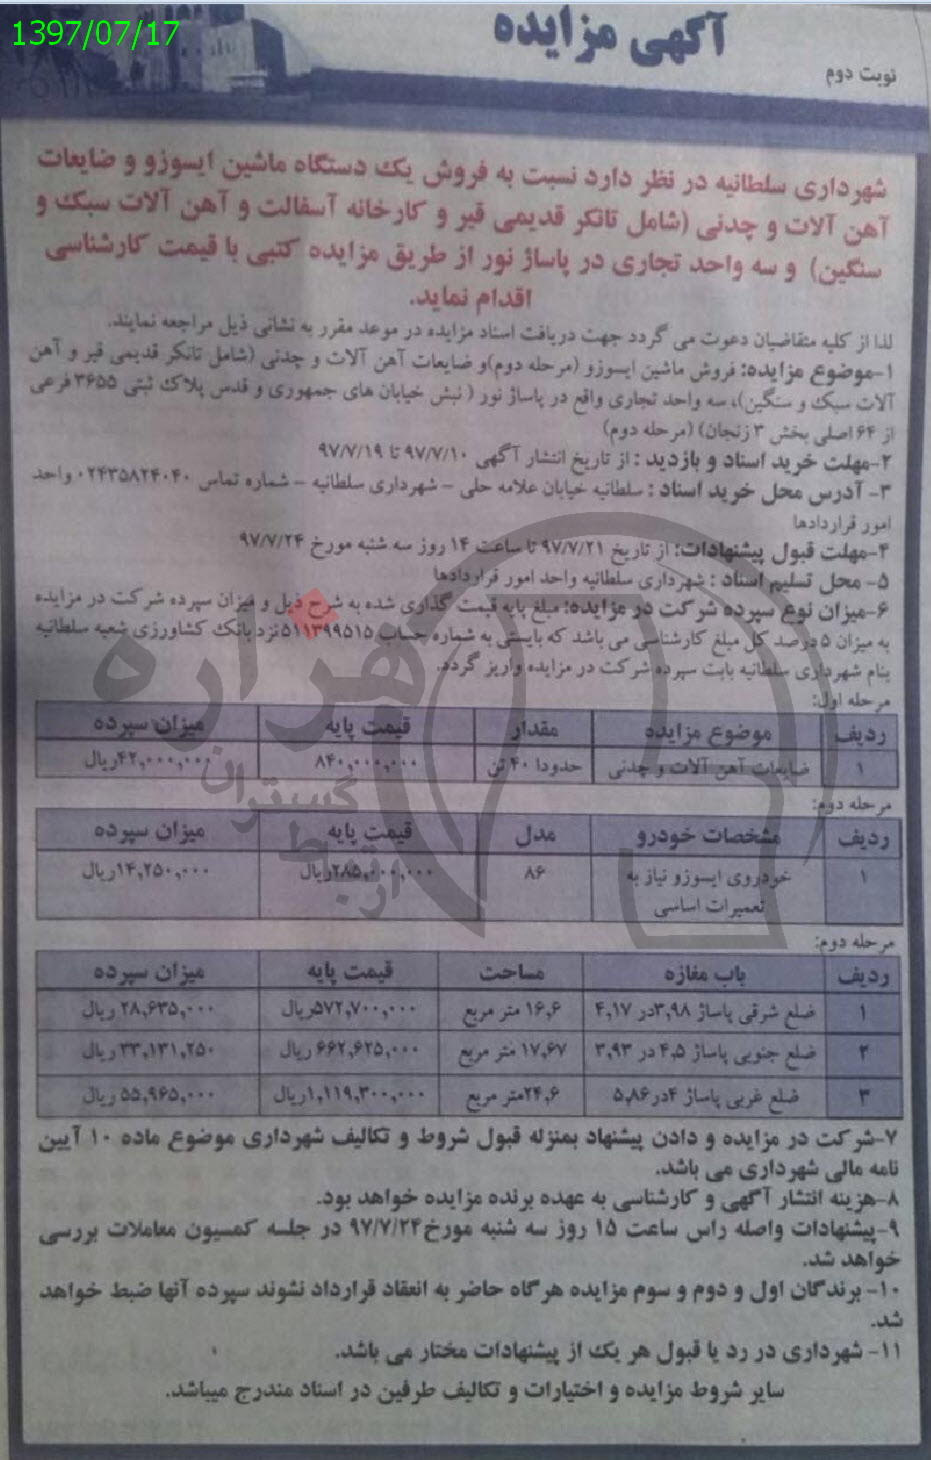 1397/07/17
آگهی مزایده
نوبت دوم
شهرداری سلطانیه در نظر دارد نسبت به فروش یک دستگاه ماشین ایسوزو و ضایعات
آهن آلات و چدنی (شامل تانکر قدیمی قیر و کارخانه آسفالت و آهن آلات سبک و
سنگین) و سه واحد تجاری در پاساژ نور از طریق مزایده کتبی با قیمت کارشناسی
اقدام نماید.
لذا از کلیه متقاضیان دعوت می گردد جهت دریافت اسناد مزایده در موعد مقرر به نشانی ذیل مراجعه نمایند.
۱-موضوع مزایده: فروش ماشین ایسوزو (مرحله دوم)و ضایعات آهن آلات و چدنی (شامل تانکر قدیمی قیر و آهن
آلات سبک و سنگین)، سه واحد تجاری واقع در پاساژ نور ( نبش خیابان های جمهوری و قدس پلاک ثبتی ۳۶۵۵ فرعی
از ۶۴ اصلی بخش ۳ زنجان) (مرحله دوم)
۲-مهلت خرید اسناد و بازدید : از تاریخ انتشار آگهی ۹۷/۷/۱۰ تا ۹۷/۷/۱۹
۳- آدرس محل خرید اسناد : سلطانیه خیابان علامه حلی - شهرداری سلطانیه - شماره تماس ۰۲۴۳۵۸۲۴۰۴۰ واحد
امور قراردادها
۴-مهلت قبول پیشنهادات: از تاریخ ۹۷/۷/۲۱ تا ساعت ۱۴ روز سه شنبه مورخ ۹۷/۷/۲۴
۵- محل تسلیم اسناد : شهرداری سلطانیه واحد امور قراردادها
۶-میزان نوع سپرده شرکت در مزایده: مبلغ پایه قیمت گذاری شده به شرح ذیل و میزان سپرده شرکت در مزایده
به میزان ۵ درصد کل مبلغ کارشناسی می باشد که بایستی به شماره حساب ۵۱۱۳۹۹۵۱۵ نزد بانک کشاورزی شعبه سلطانیه
بنام شهرداری سلطانیه بابت سپرده شرکت در مزایده واریز گردد.
مرحله اول:
ردیف موضوع مزایده مقدار قیمت پایه میزان سپرده
۱ ضایعات آهن آلات و چدنی حدودا ۴۰ تن ۸۴۰,۰۰۰,۰۰۰ ۴۲,۰۰۰,۰۰۰ریال
مرحله دوم:
ردیف مشخصات خودرو مدل قیمت پایه میزان سپرده
۱ خودروی ایسوزو نیاز به ۸۶ ۲۸۵,۰۰۰,۰۰۰ریال ۱۴,۲۵۰,۰۰۰ریال
تعمیرات اساسی
مرحله دوم:
ردیف باب مغازه مساحت قیمت پایه میزان سپرده
۱ ضلع شرقی پاساژ ۳,۹۸در ۴,۱۷ ۱۶,۶ متر مربع ۵۷۲,۷۰۰,۰۰۰ریال ۲۸,۶۳۵,۰۰۰ ریال
۲ ضلع جنوبی پاساژ ۴,۵ در ۳,۹۳ ۱۷,۶۷ متر مربع ۶۶۲,۶۲۵,۰۰۰ ریال ۳۳,۱۳۱,۲۵۰ ریال
۳ ضلع غربی پاساژ ۴در۵,۸۶ ۲۴,۶متر مربع ۱,۱۱۹,۳۰۰,۰۰۰ریال ۵۵,۹۶۵,۰۰۰ ریال
۷-شرکت در مزایده و دادن پیشنهاد بمنزله قبول شروط و تکالیف شهرداری موضوع ماده ۱۰ آیین
نامه مالی شهرداری می باشد.
۸-هزینه انتشار آگهی و کارشناسی به عهده برنده مزایده خواهد بود.
۹-پیشنهادات واصله راس ساعت ۱۵ روز سه شنبه مورخ۹۷/۷/۲۴ در جلسه کمسیون معاملات بررسی
خواهد شد.
۱۰- برندگان اول و دوم و سوم مزایده هرگاه حاضر به انعقاد قرارداد نشوند سپرده آنها ضبط خواهد
شد.
۱۱- شهرداری در رد یا قبول هر یک از پیشنهادات مختار می باشد.
سایر شروط مزایده و اختیارات و تکالیف طرفین در اسناد مندرج میباشد.
هزاره
ارتباط
گستران